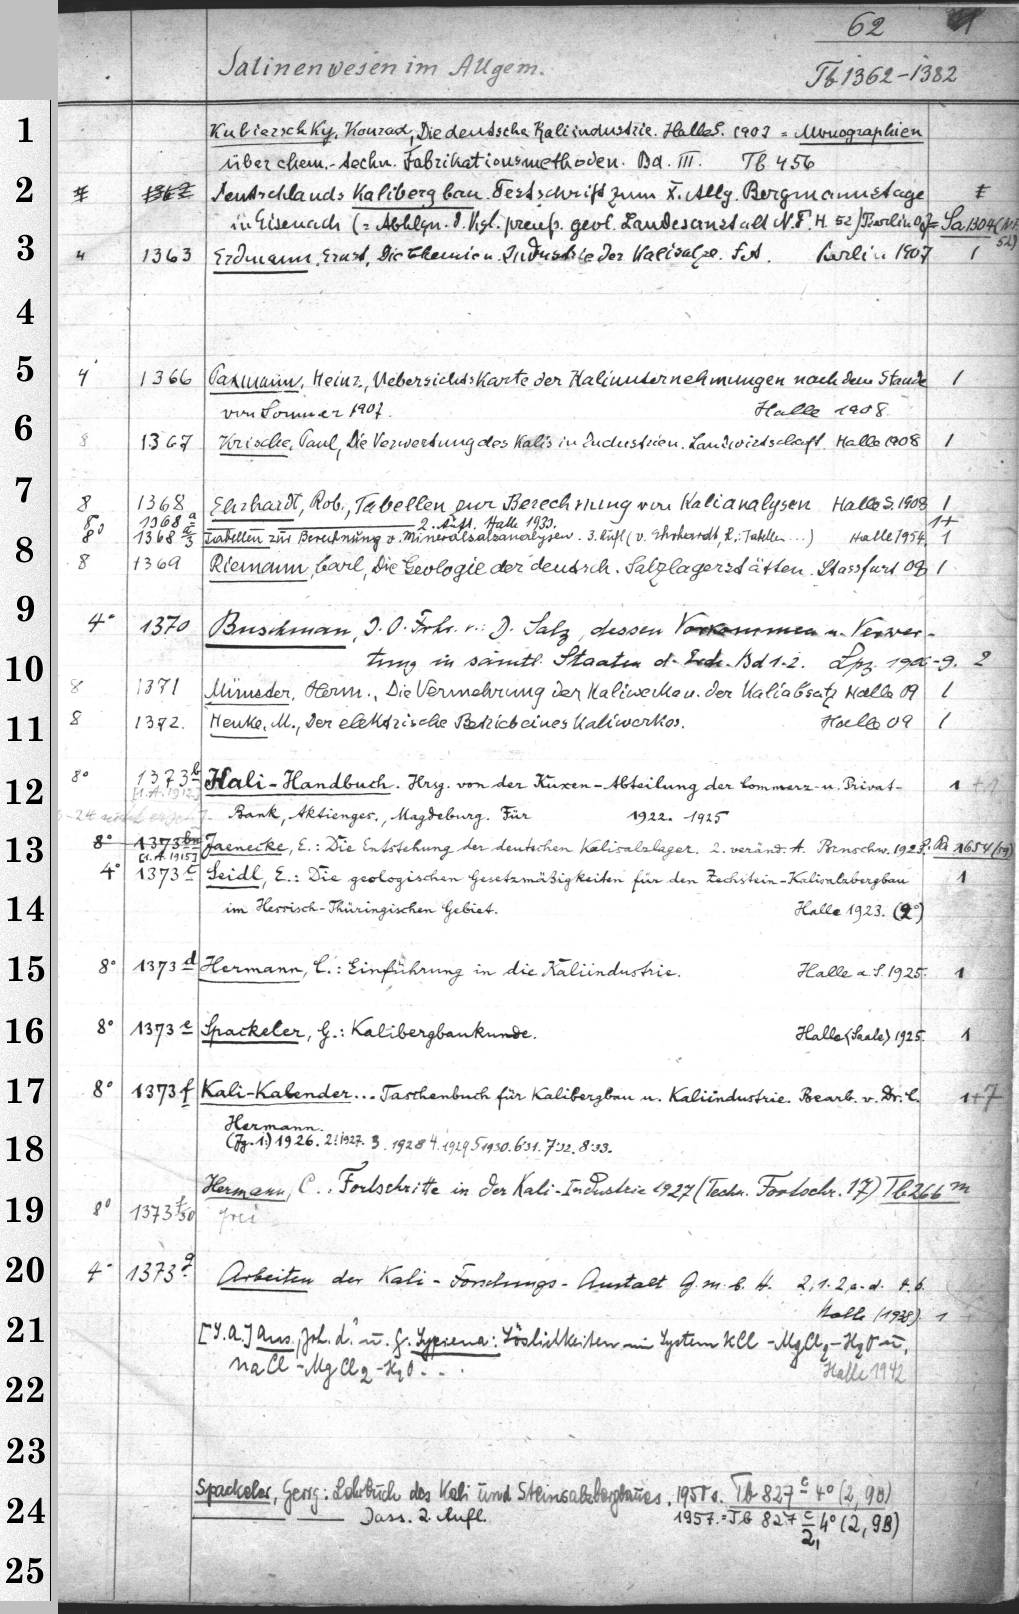 62
Salinenwesen im Allgem. Tb 1362-1382
1 Kubierschky, Konrad, Die deutsche Kaliindustrie. Halle S. 1907 = Monographien
über chem.-techn. Fabrikationsmethoden. Bd. III. Tb 456
2 4 1362 Deutschlands Kalibergbau. Festschrift zum X. Allg. Bergmannstage 1
in Eisenach (= Abhlgn. d. Kgl. preuß. geol. Landesanstalt N.F. H. 52) Berlin 07 = Sa 1304 (N.F. 52)
3 4 1363 Erdmann, Ernst, Die Chemie u. Industrie der Kalisalze. SA. Berlin 1907 1
4
5 4° 1366 Paxmann, Heinz, Uebersichtskarte der Kaliunternehmungen nach dem Stande 1
von Sommer 1907. Halle 1908.
6 8 1367 Krische, Paul, Die Verwertung des Kalis in Industrie u. Landwirtschaft. Halle 1908 1
7 8 1368 Ehrhardt, Rob., Tabellen zur Berechnung von Kalianalysen Halle S. 1908 1
8° 1368 a 2. Aufl. Halle 1933. 1+
8° 1368 a/3 Tabellen zur Berechnung v. Mineralsalzanalysen. 3. Aufl. (v. Ehrhardt, R.: Tabellen ...) Halle 1954. 1
8 8 1369 Riemann, Carl, Die Geologie der deutsch. Salzlagerstätten. Stassfurt 08 1
9 4° 1370 Buschman, J. O. Frhr. v.: D. Salz, dessen Vorkommen u. Verwer-
10 tung in sämtl. Staaten d. Erde. Bd 1-2. Lpz. 1906-9. 2
8 1371 Münster, Herm., Die Vermehrung der Kaliwerke u. der Kaliabsatz Halle 09 1
11 8 1372. Henke, M., Der elektrische Betrieb eines Kaliwerkes. Halle 09 1
12 8° 1373 b Kali-Handbuch. Hrsg. von der Kuxen-Abteilung der Commerz- u. Privat- 1 +1
[1.A. 1912] Bank, Aktienges., Magdeburg. Für 1922. 1925
13 8° 1373 ba Jaenecke, E.: Die Entstehung der deutschen Kalisalzlager. 2. veränd. A. Brnschw. 1923. 1654/(59)
[1.A. 1915]
4° 1373 c Seidl, E.: Die geologischen Gesetzmäßigkeiten für den Zechstein-Kalisalzbergbau 1
14 im Hessisch-Thüringischen Gebiet. Halle 1923. (2°)
15 8° 1373 d Hermann, C.: Einführung in die Kaliindustrie. Halle a. S. 1925. 1
16 8° 1373 e Spackeler, G.: Kalibergbaukunde. Halle (Saale) 1925. 1
17 8° 1373 f Kali-Kalender... Taschenbuch für Kalibergbau u. Kaliindustrie. Bearb. v. Dr. C. 1+7
Hermann.
18 (Jg. 1:) 1926. 2:1927. 3. 1928 4. 1929 5 1930. 6:31. 7:32. 8:33.
Hermann, C.. Fortschritte in der Kali-Industrie 1927 (Techn. Fortschr. 17) Tb 266 m
19 8° 1373 f/50 frei
20 4° 1373 g Arbeiten der Kali-Forschungs-Anstalt G.m.b.H. 2,1.2,a-d. 4.6.
Halle (1938) 1
21 [S.A.] Aus, Joh. d' u. G. Löslichkeiten im System KCl -MgCl2-H2O u.
NaCl -MgCl2 -H2O . . Halle 1942
22
23
24 Spackeler, Georg: Lehrbuch des Kali und Steinsalzbergbaues. 195 s. Tb 827 c 4° (2, 9B)
Dass. 2. Aufl. 1957. = Tb 827 c/2, 4° (2, 9B)
25